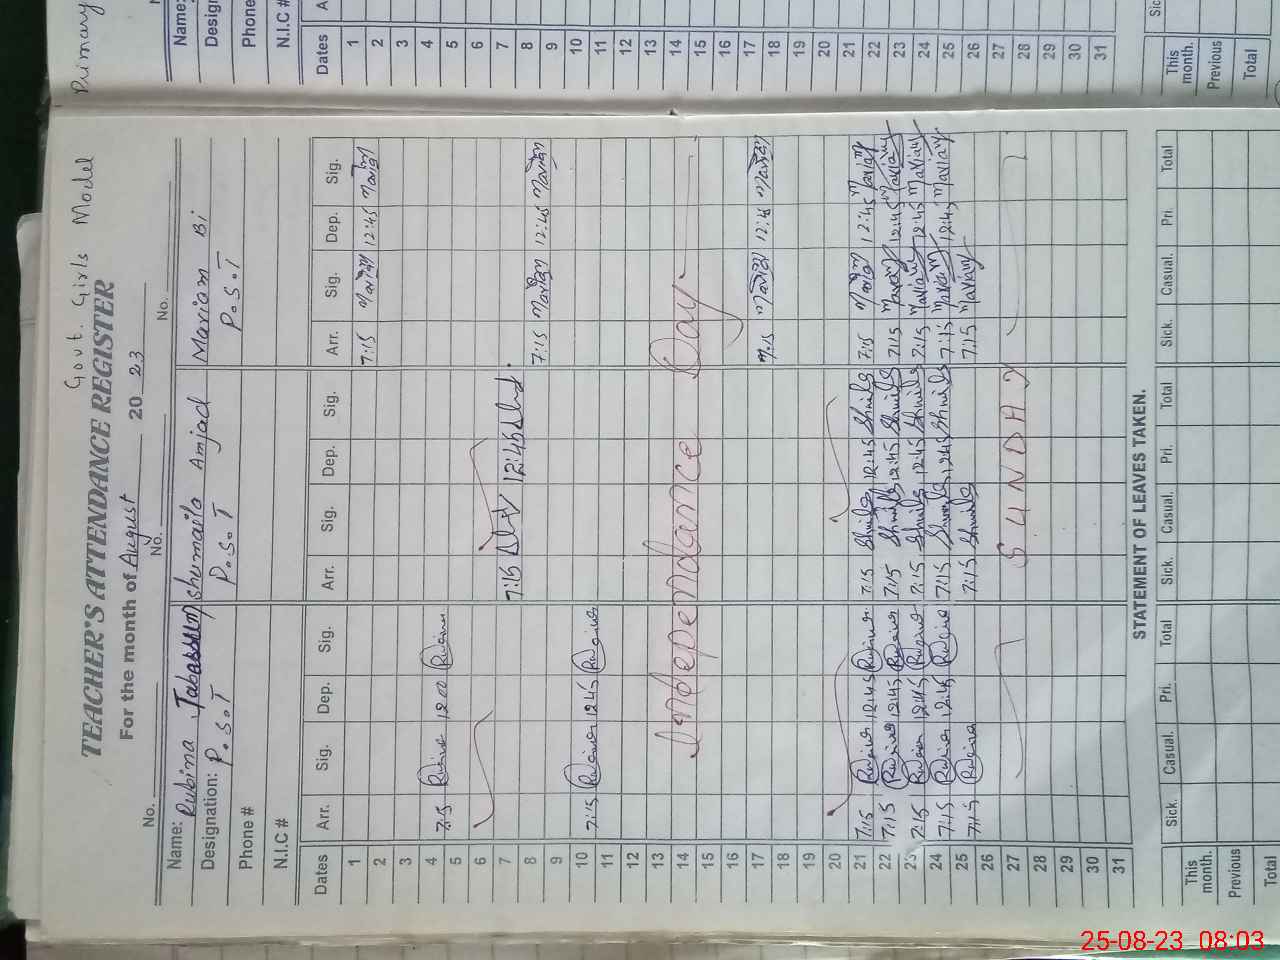 Primary
Name:
Design
Phone
N.I.C #
Dates
1
2
3
4
5
6
7
8
9
10
11
12
13
14
15
16
17
18
19
20
21
22
23
24
25
26
27
28
29
30
31
This month.
Previous
Total
Govt. Girls Model
TEACHER'S ATTENDANCE REGISTER
For the month of August 2023
No. No. No.
Name: Rubina Tabassum Shumaila Amjad Mariam Bi
Designation: P.S.T P.S.T P.S.T
Phone #
N.I.C #
Dates Arr. Sig. Dep. Sig. Arr. Sig. Dep. Sig. Arr. Sig. Dep. Sig.
1 7:15 Mariam 12:45 Mariam
2
3
4 7:15 Rubina 12:00 Rubina
5
6
7 7:15 12:45
8 7:15 Mariam 12:45 Mariam
9
10 7:15 Rubina 12:45 Rubina
11
12
13
14 Independance Day
15
16
17 7:15 Mariam 12:45 Mariam
18
19
20
21 7:15 Rubina 12:45 Rubina 7:15 Shumaila 12:45 Shumaila 7:15 Mariam 12:45 Mariam
22 7:15 Rubina 12:45 Rubina 7:15 Shumaila 12:45 Shumaila 7:15 Mariam 12:45 Mariam
23 7:15 Rubina 12:45 Rubina 7:15 Shumaila 12:45 Shumaila 7:15 Mariam 12:45 Mariam
24 7:15 Rubina 12:45 Rubina 7:15 Shumaila 12:45 Shumaila 7:15 Mariam 12:45 Mariam
25 7:15 Rubina 7:15 Shumaila 7:15 Mariam
26
27 SUNDAY
28
29
30
31
STATEMENT OF LEAVES TAKEN.
Sick. Casual. Pri. Total Sick. Casual. Pri. Total Sick. Casual. Pri. Total
This month.
Previous
Total
25-08-23 08:03